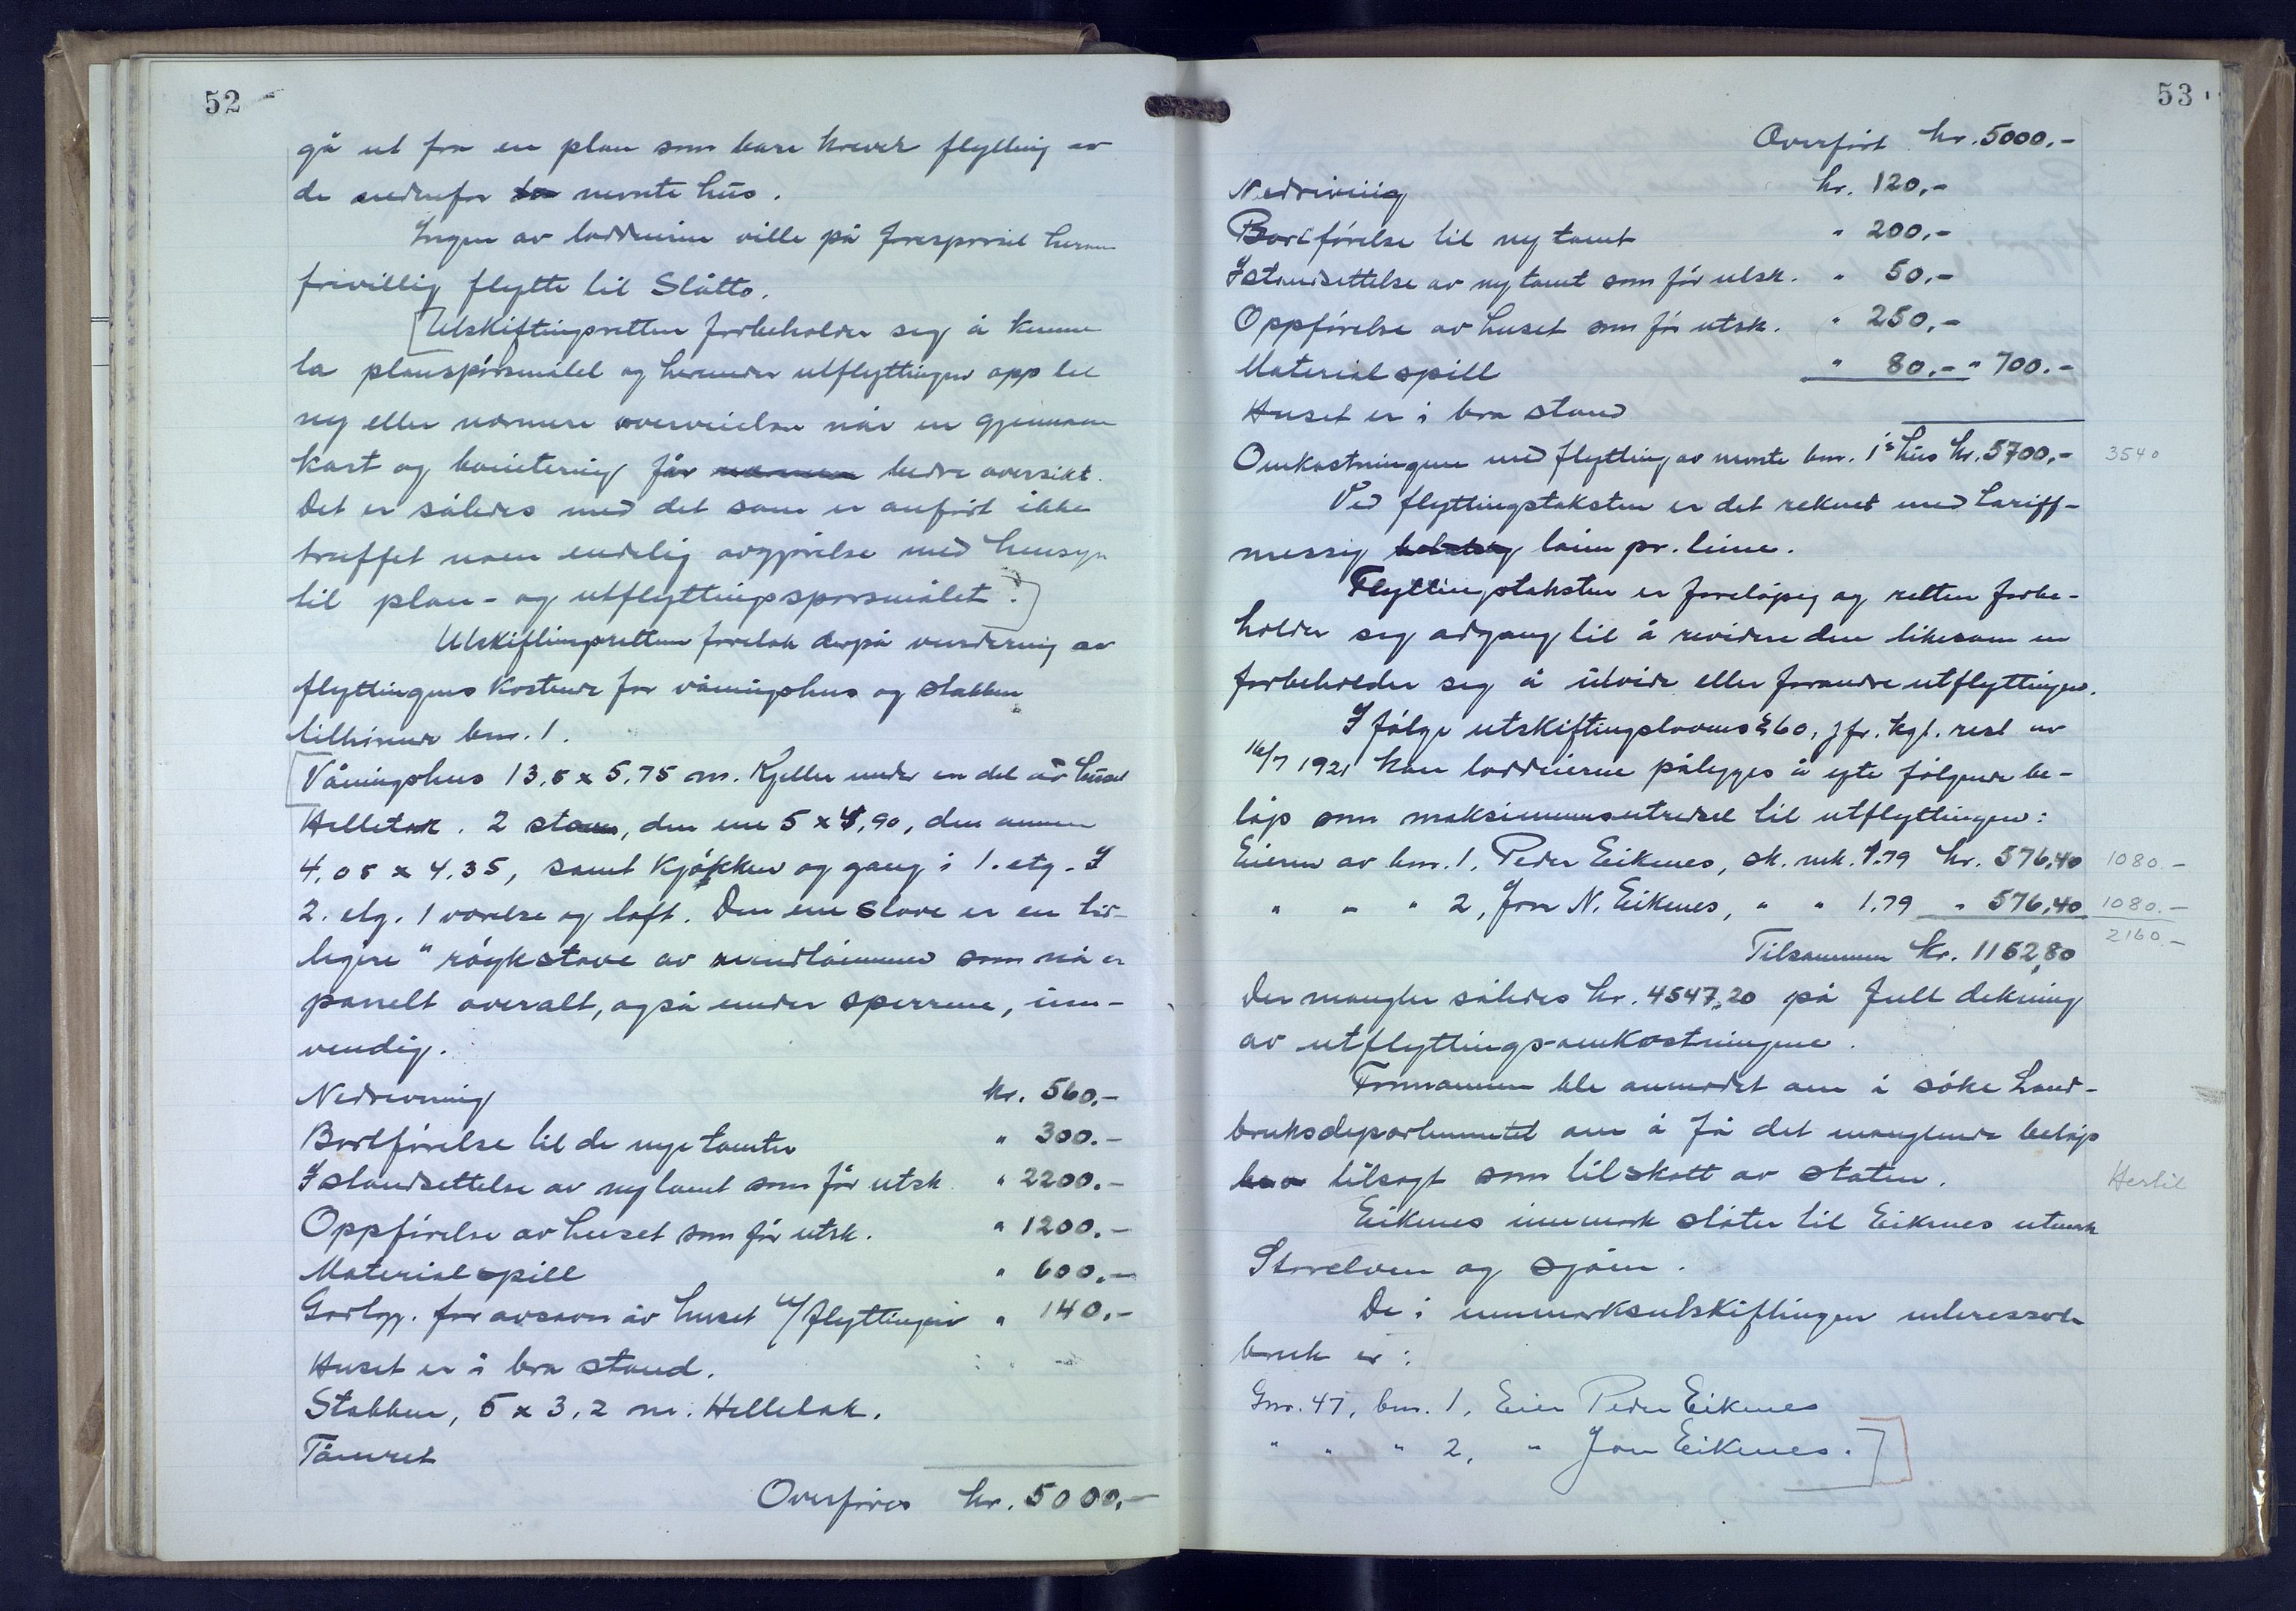 52
gå ut fra en plan som bare krever flytting av
de nedenfor nevnte hus.
Ingen av lodderne ville på forespørsel herom
frivillig flytte til Slåtto.
[Utskiftingsretten forbeholder seg å kunne
ta planspørsmålet og herunder utflyttingen opp til
ny eller nærmere overveielse når en gjennem
kart og bonitering får bedre oversikt.
Det er således med det som er anført ikke
truffet noen endelig avgjørelse med hensyn
til plan- og utflyttingsspørsmålet.]
Utskiftingsretten foretok derpå vurdering av
flyttingens kostende for våningshus og stabbur
tilhørende bnr. 1.
[Våningshus 13,5 x 5,75 m. Kjeller under en del av huset
Helletak. 2 stover, den ene 5 x 4,90, den annen
4,05 x 4,35, samt kjøkken og gang i 1. etg. I
2. etg. 1 værelse og loft. Den ene stove er en tid-
ligere "røykstove av rundtømmer som nå er
panelt overalt, også under sperrene, inn-
vendig.
Nedrivning kr. 560.-
Bortførelse til de nye tomter " 300.-
Istandsettelse av ny tomt som før utsk. " 2200.-
Oppførelse av huset som før utsk. " 1200.-
Materialspill " 600.-
Godtgj. for avsavn av huset u/flyttingen " 140.-
Huset er i bra stand.
Stabbur, 5 x 3,2 m. Helletak.
Tømret
Overføres kr. 5000.-
53
Overført kr. 5000.-
Nedrivning kr. 120,-
Bortførelse til ny tomt " 200,-
Istandsettelse av ny tomt som før utsk. " 50,-
Oppførelse av huset som før utsk. " 250,-
Materialspill " 80,- " 700.-
Huset er i bra stand
Omkostningene med flytting av nevnte bnr. 1's hus kr. 5700,- 3540
Ved flyttingstaksten er det reknet med tariff-
messig lønn pr. time.
Flyttingstaksten er foreløpig og retten forbe-
holder seg adgang til å revidere den likesom en
forbeholder seg å utvide eller forandre utflyttingen.
I følge utskiftingslovens § 60, jfr. kgl. resl av
16/7 1921 kan lodderne pålegges å yte følgende be-
løp som maksimumsutredsel til utflyttingen:
Eieren av bnr. 1, Peder Eikenes, sk. mk. 1.79 kr. 576,40 1080.-
" " " 2, Jon N. Eikenes, " " 1.79 " 576,40 1080.-
2160.-
Tilsammen kr. 1152,80
Der mangler således kr. 4547,20 på full dekning
av utflyttings-omkostningene.
Formannen ble anmodet om å søke Land-
bruksdepartementet om å få det manglende beløp
tilsagt som tilskott av staten. Hertil
Eikenes innmark støter til Eikenes utmark
Storelven og sjøen.
De i innmarksutskiftingen interesserte
bruk er:
Gnr. 47, bnr. 1, Eier Peder Eikenes
" " " 2, " Jon Eikenes.]